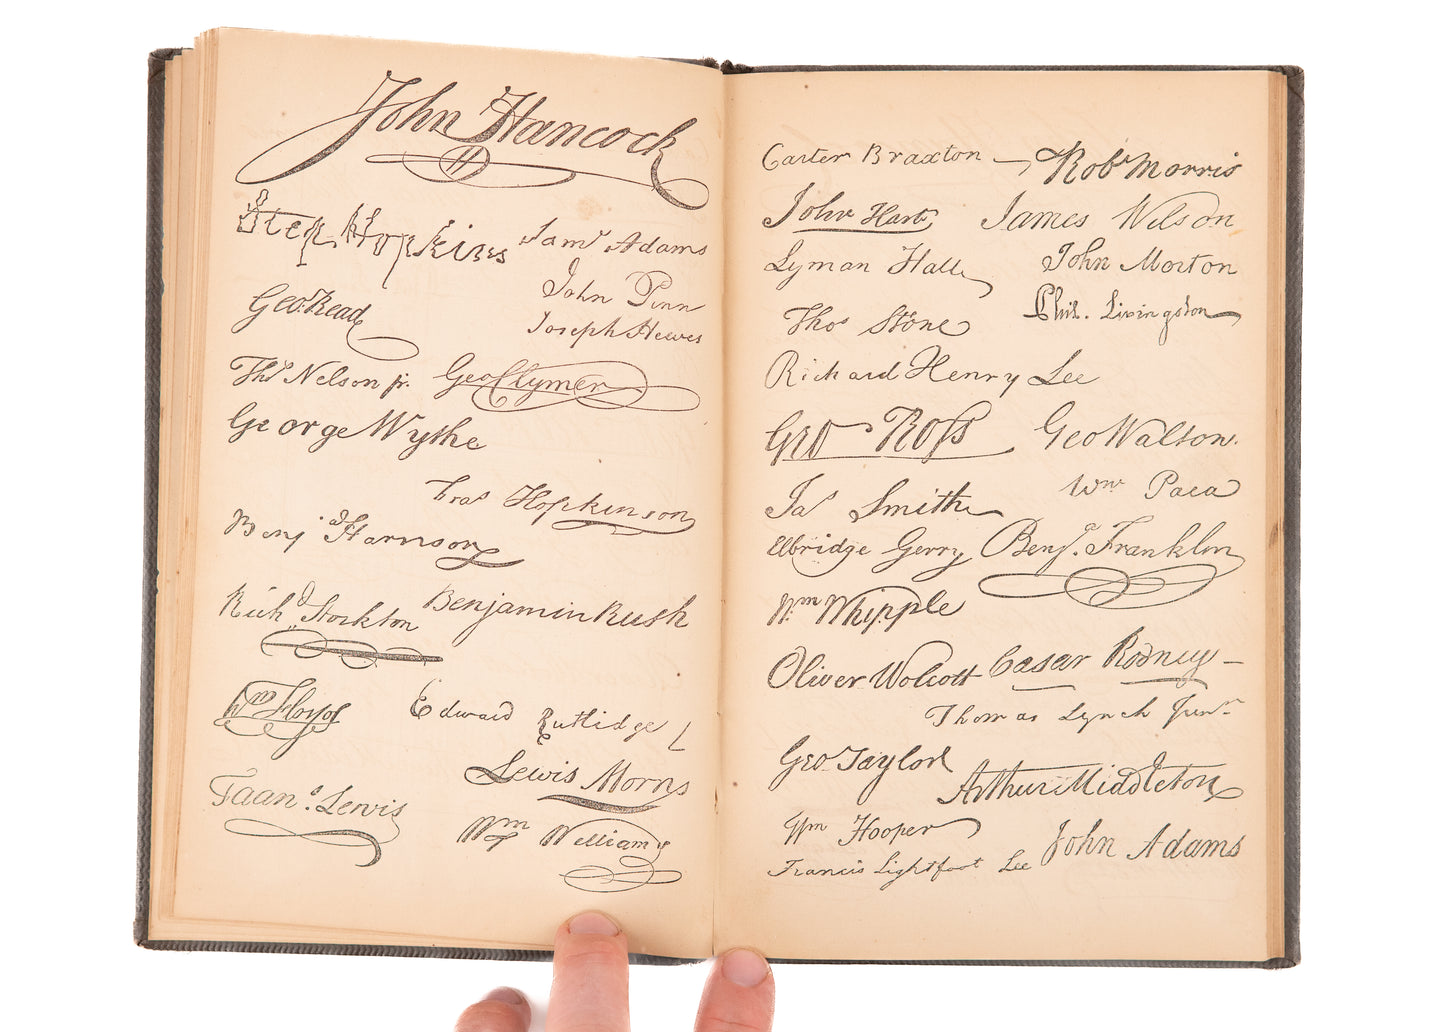 John Hancock
H
Step Hopkins
Saml Adams
John Penn
Geo. Read
Joseph Hewes
Thos Nelson jr.
Geo Clymer
George Wythe
Fras Hopkinson
Benj Harrison
Richd Stockton
Benjamin Rush
Wm Floyd
Edward Rutlidge
Lewis Morris
Faans. Lewis
Wm Williams
Carter Braxton
Robt Morris
John Hart
James Wilson
Lyman Hall
John Morton
Phil. Livingston
Thos Stone
Richard Henry Lee
Geo Ross
Geo Walton.
Wm Paca
Jas Smith
Elbridge Gerry
Benja. Franklin
Wm Whipple
Oliver Wolcott
Casar Rodney
Thomas Lynch Junr
Geo Taylor
Arthur Middleton
Wm Hooper
John Adams
Francis Lightfoot Lee